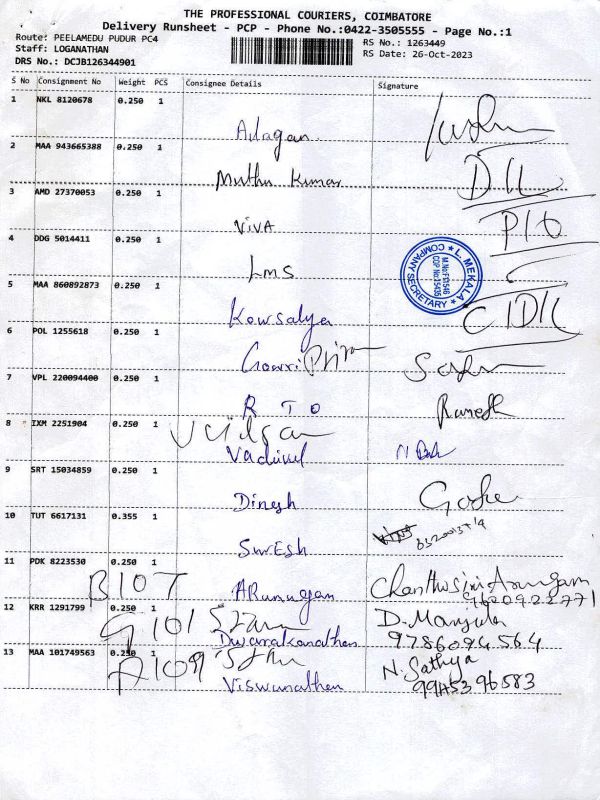 THE PROFESSIONAL COURIERS, COIMBATORE
Delivery Runsheet - PCP - Phone No.:0422-3505555 - Page No.:1
Route: PEELAMEDU PUDUR PC4
RS No.: 1263449
Staff: LOGANATHAN
RS Date: 26-Oct-2023
DRS No.: DCJB126344901
S No Consignment No Weight PCS Consignee Details Signature
1 NKL 8120678 0.250 1
Alagan
2 MAA 943665388 0.250 1
Muthu Kumar
3 AMD 27370053 0.250 1
VIVA
4 DDG 5014411 0.250 1
LMS
L. MEKALA
COMPANY SECRETARY
5 MAA 860892873 0.250 1
Kowsalya
6 POL 1255618 0.250 1
Gowri Priya
7 VPL 220094400 0.250 1
RTO Ramesh
8 IXM 2251904 0.250 1
Vadivel
9 SRT 15034859 0.250 1
Dinesh
10 TUT 6617131 0.355 1
SurESh
11 PDK 8223530 0.250 1
B107 ARumugam Arumugam
12 KRR 1291799 0.250 1
G101 Dwarakanathan D. Manjula
9786094564
13 MAA 101749563 0.250 1
A109 Viswanathan N. Sathya
9945396583